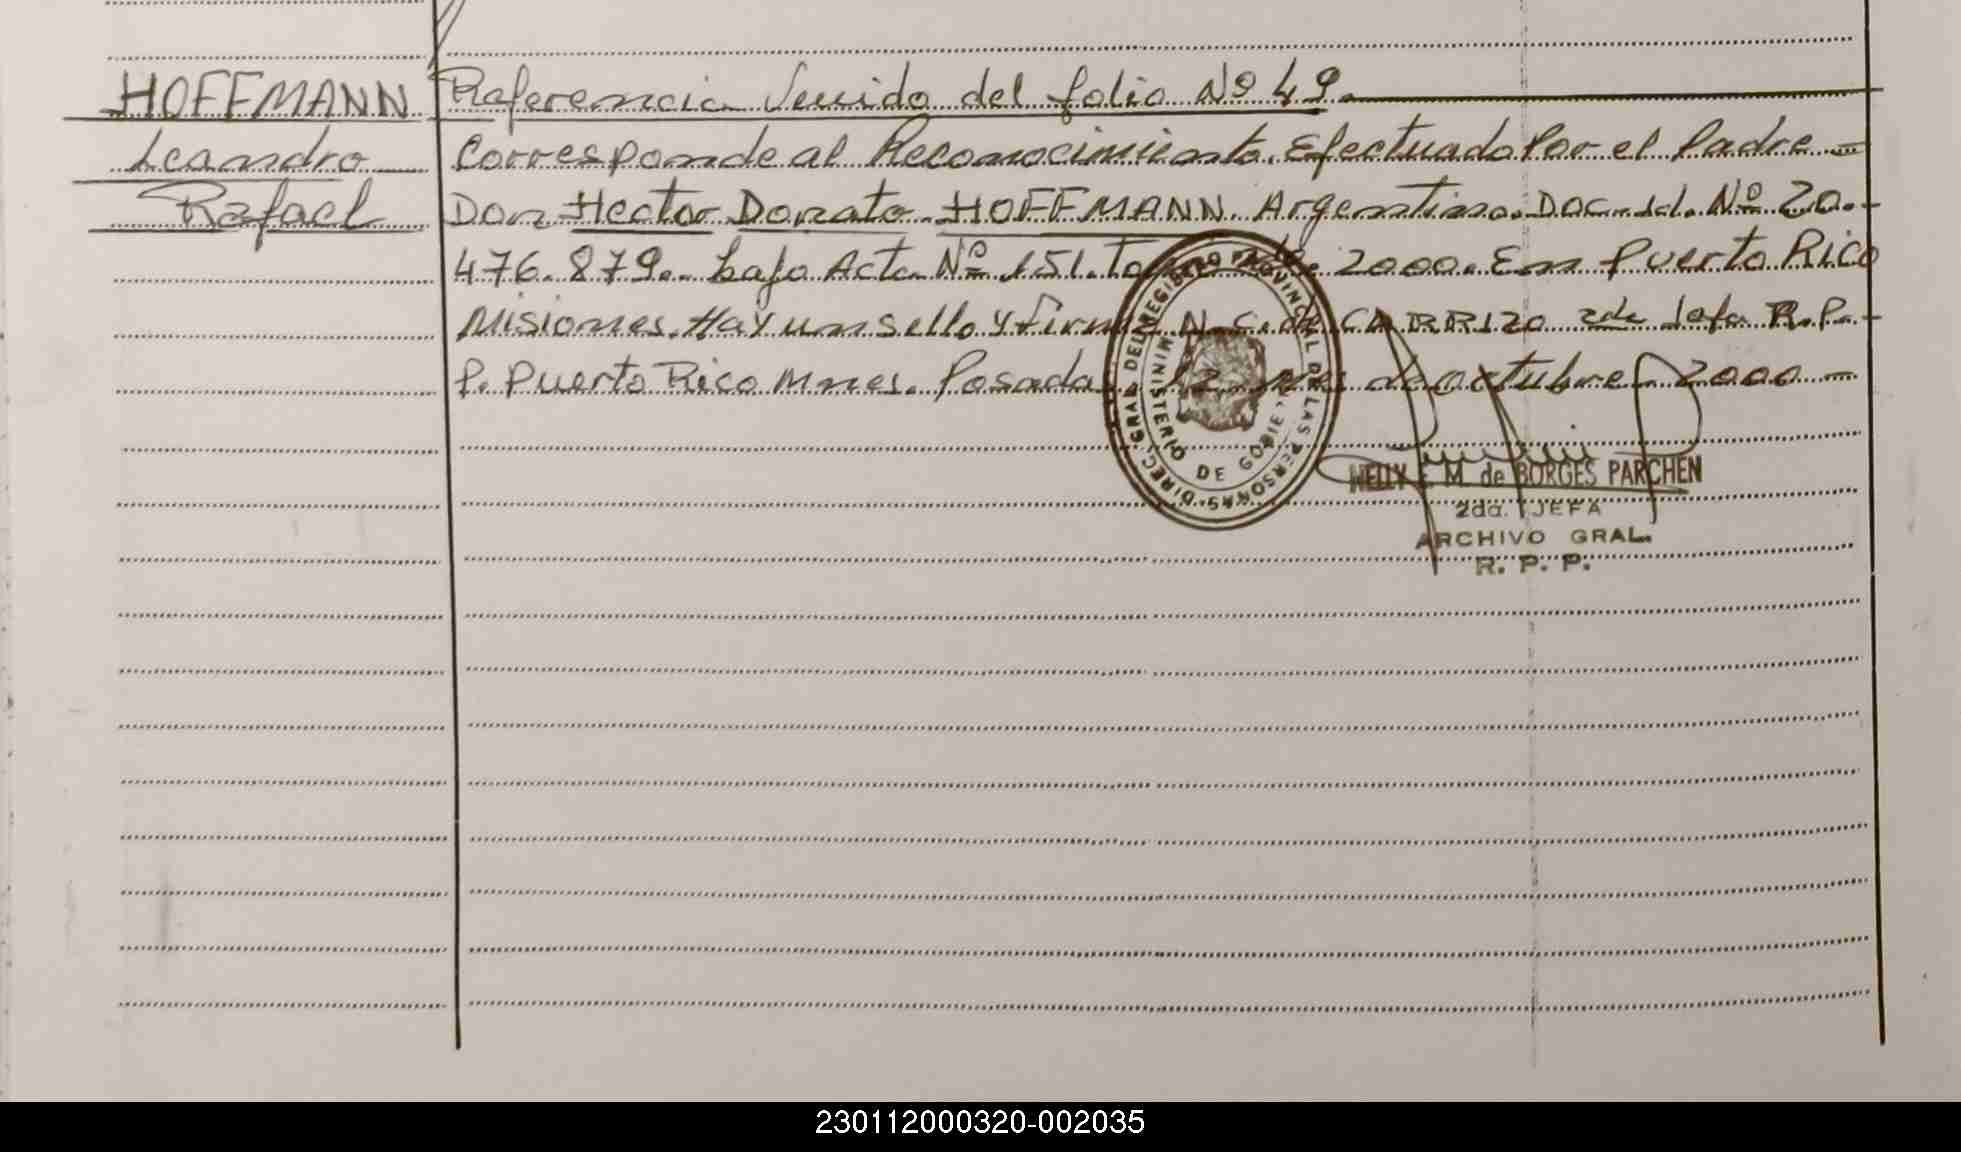 HOFFMANN Referencia Venido del folio Nº 49.
Leandro Corresponde al Reconocimiento. Efectuado Por el Padre —
Rafael Don Hector Donato HOFFMANN. Argentino. Doc. Id. Nº 20.-
476.879.. bajo Acta Nº 151. 2000. En Puerto Rico
Misiones. Hay un sello y firma N. C. de CARRIZO 2da Jefa R.P.-
P. Puerto Rico Mnes. Posadas, 12 de octubre 2000 —
DIREC. GRAL. DEL REGISTRO PROVINCIAL DE LAS PERSONAS
MINISTERIO DE GOBIERNO
NELLY E. M. de BORGES PARCHEN
2da. JEFA
ARCHIVO GRAL.
R. P. P.
230112000320-002035